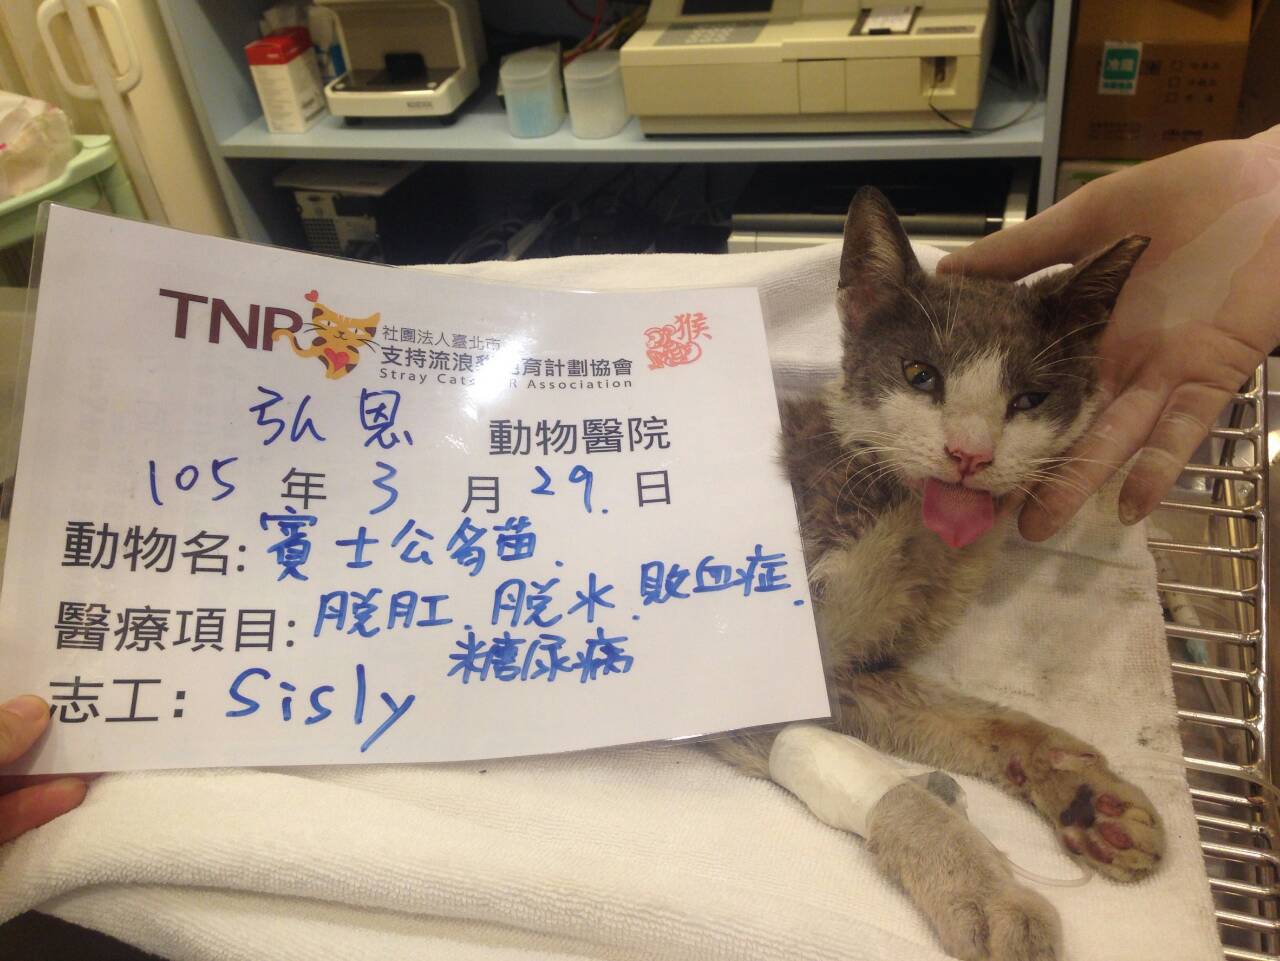 TNR
社團法人臺北市
支持流浪貓 育計劃協會
Stray Cats R Association
猴
弘恩 動物醫院
105 年 3 月 29. 日
動物名: 賓士公多苗.
醫療項目: 脫肛. 脫水. 敗血症.
糖尿病
志工: Sisly
冷藏